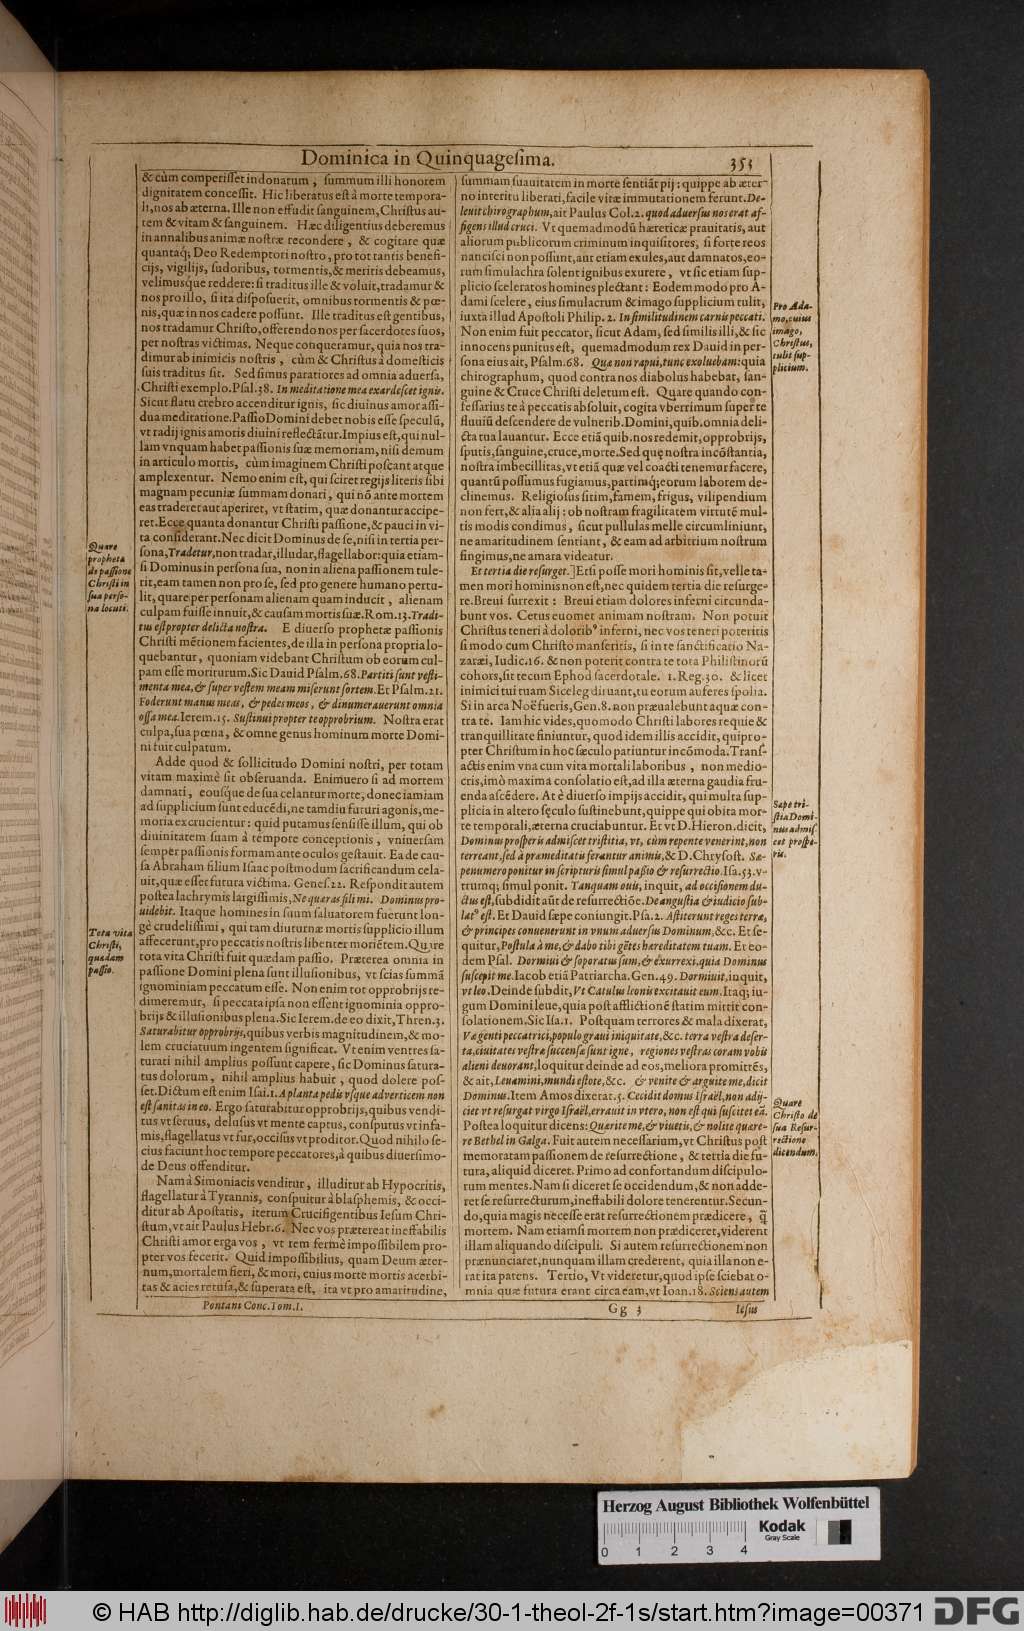 Dominica in Quinquagesima. 353
& cùm competisset in donatum, summum illi honorem
dignitatem concessit. Hic liberatus est à morte tempora-
li, nos ab æterna. Ille non effudit sanguinem, Christus au-
tem & vitam & sanguinem. Hæc diligentius deberemus
in annalibus animæ nostræ recondere, & cogitare quæ
quantaq; Deo Redemptori nostro, pro tot tantis benefi-
cijs, vigilijs, sudoribus, tormentis, & meritis debeamus,
velimusque reddere: si traditus ille & voluit, tradamur &
nos pro illo, si ita disposuerit, omnibus tormentis & pœ-
nis, quæ in nos cadere possunt. Ille traditus est gentibus,
nos tradamur Christo, offerendo nos per sacerdotes suos,
per nostras victimas. Neque conqueramur, quia nos tra-
dimur ab inimicis nostris, cùm & Christus à domesticis
suis traditus sit. Sed simus paratiores ad omnia aduersa,
Christi exemplo. Psal. 38. In meditatione mea exardescet ignis.
Sicut flatu crebro accenditur ignis, sic diuinus amor assi-
dua meditatione. Passio Domini debet nobis esse speculū,
vt radij ignis amoris diuini reflectātur. Impius est, qui nul-
lam vnquam habet passionis suæ memoriam, nisi demum
in articulo mortis, cùm imaginem Christi poscant atque
amplexentur. Nemo enim est, qui sciret regijs literis sibi
magnam pecuniæ summam donari, qui nō ante mortem
eas traderet aut aperiret, vt statim, quæ donantur accipe-
ret. Ecce quanta donantur Christi passione, & pauci in vi-
ta considerant. Nec dicit Dominus de se, nisi in tertia per-
sona, Tradetur, non tradar, illudar, flagellabor: quia etiam-
si Dominus in persona sua, non in aliena passionem tule-
rit, eam tamen non pro se, sed pro genere humano pertu-
lit, quare per personam alienam quam inducit, alienam
culpam fuisse innuit, & causam mortis suæ. Rom. 13. Tradi-
tus est propter delicta nostra. E diuerso prophetæ passionis
Christi mētionem facientes, de illa in persona propria lo-
quebantur, quoniam videbant Christum ob eorum cul-
pam esse moriturum. Sic Dauid Psalm. 68. Partiti sunt vesti-
menta mea, & super vestem meam miserunt sortem. Et Psalm. 21.
Foderunt manus meas, & pedes meos, & dinumerauerunt omnia
ossa mea. Ierem. 15. Sustinui propter te opprobrium. Nostra erat
culpa, sua pœna, & omne genus hominum morte Domi-
ni fuit culpatum.
Adde quod & sollicitudo Domini nostri, per totam
vitam maximè sit obseruanda. Enimuero si ad mortem
damnati, eousque de sua celantur morte, donec iamiam
ad supplicium sunt educēdi, ne tamdiu futuri agonis, me-
moria excrucientur: quid putamus sensisse illum, qui ob
diuinitatem suam à tempore conceptionis, vniuersam
semper passionis formam ante oculos gestauit. Ea de cau-
sa Abraham filium Isaac postmodum sacrificandum cela-
uit, quæ esset futura victima. Genes. 22. Respondit autem
postea lachrymis largissimis, Ne quæras fili mi. Dominus pro-
uidebit. Itaque homines in suum saluatorem fuerunt lon-
gè crudelissimi, qui tam diuturnæ mortis supplicio illum
affecerunt, pro peccatis nostris libenter moriētem. Quare
tota vita Christi fuit quædam passio. Præterea omnia in
passione Domini plena sunt illusionibus, vt scias summā
ignominiam peccatum esse. Non enim tot opprobrijs re-
dimeremur, si peccata ipsa non essent ignominia oppro-
brijs & illusionibus plena. Sic Ierem. de eo dixit, Thren. 3.
Saturabitur opprobrijs, quibus verbis magnitudinem, & mo-
lem cruciatuum ingentem significat. Vt enim ventres sa-
turati nihil amplius possunt capere, sic Dominus satura-
tus dolorum, nihil amplius habuit, quod dolere pos-
set. Dictum est enim Isai. 1. A planta pedis vsque ad verticem non
est sanitas in eo. Ergo saturabitur opprobrijs, quibus vendi-
tus vt seruus, delusus vt mente captus, conspurus vt infa-
mis, flagellatus vt fur, occisus vt proditor. Quod nihilo se-
cius faciunt hoc tempore peccatores, à quibus diuersimo-
de Deus offenditur.
Nam à Simoniacis venditur, illuditur ab Hypocritis,
flagellatur à Tyrannis, conspuitur à blasphemis, & occi-
ditur ab Apostatis, iterum Crucifigentibus Iesum Chri-
stum, vt ait Paulus Hebr. 6. Nec vos prætereat ineffabilis
Christi amor erga vos, vt rem fermè impossibilem pro-
pter vos fecerit. Quid impossibilius, quam Deum æter-
num, mortalem fieri, & mori, cuius morte mortis acerbi-
tas & acies retusa, & superata est, ita vt pro amaritudine,
Quare
propheta
de passione
Christi in
sua perso-
na locuti.
Tota vita
Christi,
quædam
passio.
summam suauitatem in morte sentiāt pij: quippe ab æter-
no interitu liberati, facile vitæ immutationem ferunt. De-
leuit chirographum, ait Paulus Col. 2. quod aduersus nos erat af-
figens illud cruci. Vt quemadmodū hæreticæ prauitatis, aut
aliorum publicorum criminum inquisitores, si forte reos
nancisci non possunt, aut etiam exules, aut damnatos, eo-
rum simulachra solent ignibus exurere, vt sic etiam sup-
plicio sceleratos homines plectant: Eodem modo pro A-
dami scelere, eius simulacrum & imago supplicium tulit,
iuxta illud Apostoli Philip. 2. In similitudinem carnis peccati.
Non enim fuit peccator, sicut Adam, sed similis illi, & sic
innocens punitus est, quemadmodum rex Dauid in per-
sona eius ait, Psalm. 68. Quæ non rapui, tunc exoluebam: quia
chirographum, quod contra nos diabolus habebat, san-
guine & Cruce Christi deletum est. Quare quando con-
fessarius te à peccatis absoluit, cogita vberrimum super te
fluuiū descendere de vulnerib. Domini, quib. omnia deli-
cta tua lauantur. Ecce etiā quib. nos redemit, opprobrijs,
sputis, sanguine, cruce, morte. Sed quę nostra incōstantia,
nostra imbecillitas, vt etiā quæ vel coacti tenemur facere,
quantū possumus fugiamus, partimq; eorum laborem de-
clinemus. Religiosus sitim, famem, frigus, vilipendium
non fert, & alia alij: ob nostram fragilitatem virtutē mul-
tis modis condimus, sicut pullulas melle circumliniunt,
ne amaritudinem sentiant, & eam ad arbitrium nostrum
fingimus, ne amara videatur.
Et tertia die resurget.] Etsi posse mori hominis sit, velle ta-
men mori hominis non est, nec quidem tertia die resurge-
re. Breui surrexit: Breui etiam dolores inferni circunda-
bunt vos. Cetus euomet animam nostram. Non potuit
Christus teneri à dolorib⁹ inferni, nec vos teneri poteritis
si modo cum Christo manseritis, si in te sanctificatio Na-
zaræi, Iudic. 16. & non poterit contra te tota Philistinorū
cohors, sit tecum Ephod sacerdotale. 1. Reg. 30. & licet
inimici tui tuam Siceleg diruant, tu eorum auferes spolia.
Si in arca Noë fueris, Gen. 8. non præualebunt aquæ con-
tra te. Iam hic vides, quomodo Christi labores requie &
tranquillitate finiuntur, quod idem illis accidit, qui pro-
pter Christum in hoc sæculo patiuntur incōmoda. Trans-
actis enim vna cum vita mortali laboribus, non medio-
cris, imò maxima consolatio est, ad illa æterna gaudia fru-
enda ascēdere. At è diuerso impijs accidit, qui multa sup-
plicia in altero sęculo sustinebunt, quippe qui obita mor-
te temporali, æterna cruciabuntur. Et vt D. Hieron. dicit,
Dominus prosperis admiscet tristitia, vt, cùm repente venerint, non
terreant, sed à præmeditatis ferantur animis, & D. Chrysost. Sæ-
penumero ponitur in scripturis simul passio & resurrectio. Isa. 53. v-
trumq; simul ponit. Tanquam ouis, inquit, ad occisionem du-
ctus est, subdidit aūt de resurrectiōe. De angustia & iudicio sub-
lat⁹ est. Et Dauid sæpe coniungit. Psa. 2. Astiterunt reges terræ,
& principes conuenerunt in vnum aduersus Dominum, &c. Et se-
quitur, Postula à me, & dabo tibi gētes hæreditatem tuam. Et eo-
dem Psal. Dormiui & soporatus sum, & exurrexi, quia Dominus
suscepit me. Iacob etiā Patriarcha. Gen. 49. Dormiuit, inquit,
vt leo. Deinde subdit, Vt Catulus leonis excitauit eum. Itaq; iu-
gum Domini leue, quia post afflictionē statim mittit con-
solationem. Sic Isa. 1. Postquam terrores & mala dixerat,
Væ genti peccatrici, populo graui iniquitate, &c. terra vestra deser-
ta, ciuitates vestræ succensæ sunt igne, regiones vestras coram vobis
alieni deuorant, loquitur deinde ad eos, meliora promittēs,
& ait, Leuamini, mundi estote, &c. & venite & arguite me, dicit
Dominus. Item Amos dixerat. 5. Cecidit domus Israël, non adij-
ciet vt resurgat virgo Israël, errauit in vtero, non est qui suscitet eā.
Postea loquitur dicens: Quærite me, & viuetis, & nolite quære-
re Bethel in Galga. Fuit autem necessarium, vt Christus post
memoratam passionem de resurrectione, & tertia die fu-
tura, aliquid diceret. Primo ad confortandum discipulo-
rum mentes. Nam si diceret se occidendum, & non adde-
ret se resurrecturum, ineffabili dolore tenerentur. Secun-
do, quia magis necesse erat resurrectionem prædicere, q̄
mortem. Nam etiamsi mortem non prædiceret, viderent
illam aliquando discipuli. Si autem resurrectionem non
prænunciaret, nunquam illam crederent, quia illa non e-
rat ita patens. Tertio, Vt videretur, quod ipse sciebat o-
mnia quæ futura erant circa eam, vt Ioan. 18. Sciens autem
Pro Ada-
mo, cuius
imago,
Christus,
tulit sup-
plicium.
Sæpe tri-
stia Domi-
nus admis-
cet prospe-
ris.
Quare
Christo de
sua Resur-
rectione
dicendum.
Pontani Conc. Tom. I. Gg 3 Iesus
Herzog August Bibliothek Wolfenbüttel
0 1 2 3 4
Kodak
Gray Scale
© HAB http://diglib.hab.de/drucke/30-1-theol-2f-1s/start.htm?image=00371 DFG